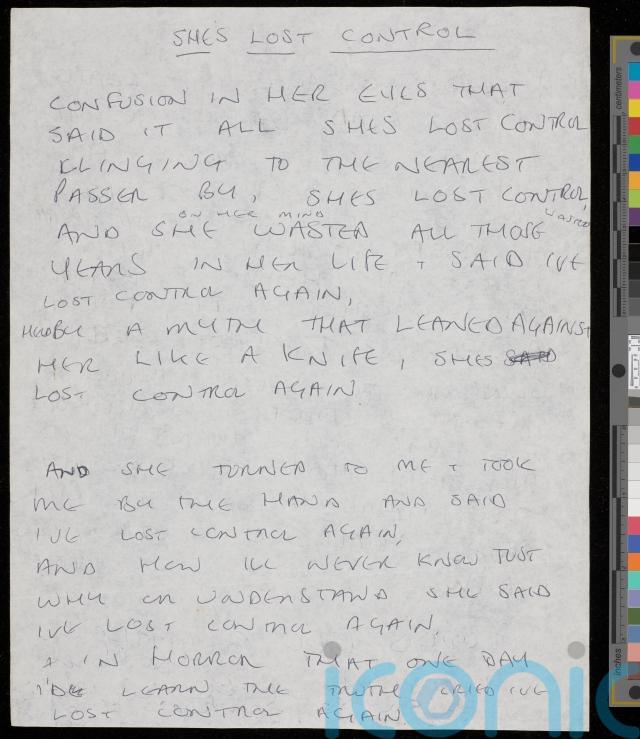 SHES LOST CONTROL
CONFUSION IN HER EYES THAT
SAID IT ALL SHES LOST CONTROL
KLINGING TO THE NEAREST
PASSER BY, SHES LOST CONTROL,
ON HER MIND WASTED
AND SHE WASTED ALL THOSE
YEARS IN HER LIFE + SAID IVE
LOST CONTROL AGAIN,
BY A MYTH THAT LEANED AGAINST
HER LIKE A KNIFE, SHES SAID
LOST CONTROL AGAIN
AND SHE TURNED TO ME + TOOK
ME BY THE HAND AND SAID
IVE LOST CONTROL AGAIN,
AND HOW ILL NEVER KNOW JUST
WHY OR UNDERSTAND SHE SAID
IVE LOST CONTROL AGAIN,
+ IN HORROR THAT ONE DAY
I'D LEARN THE TRUTH CRIED IVE
LOST CONTROL AGAIN.
iconic
centimeters
inches